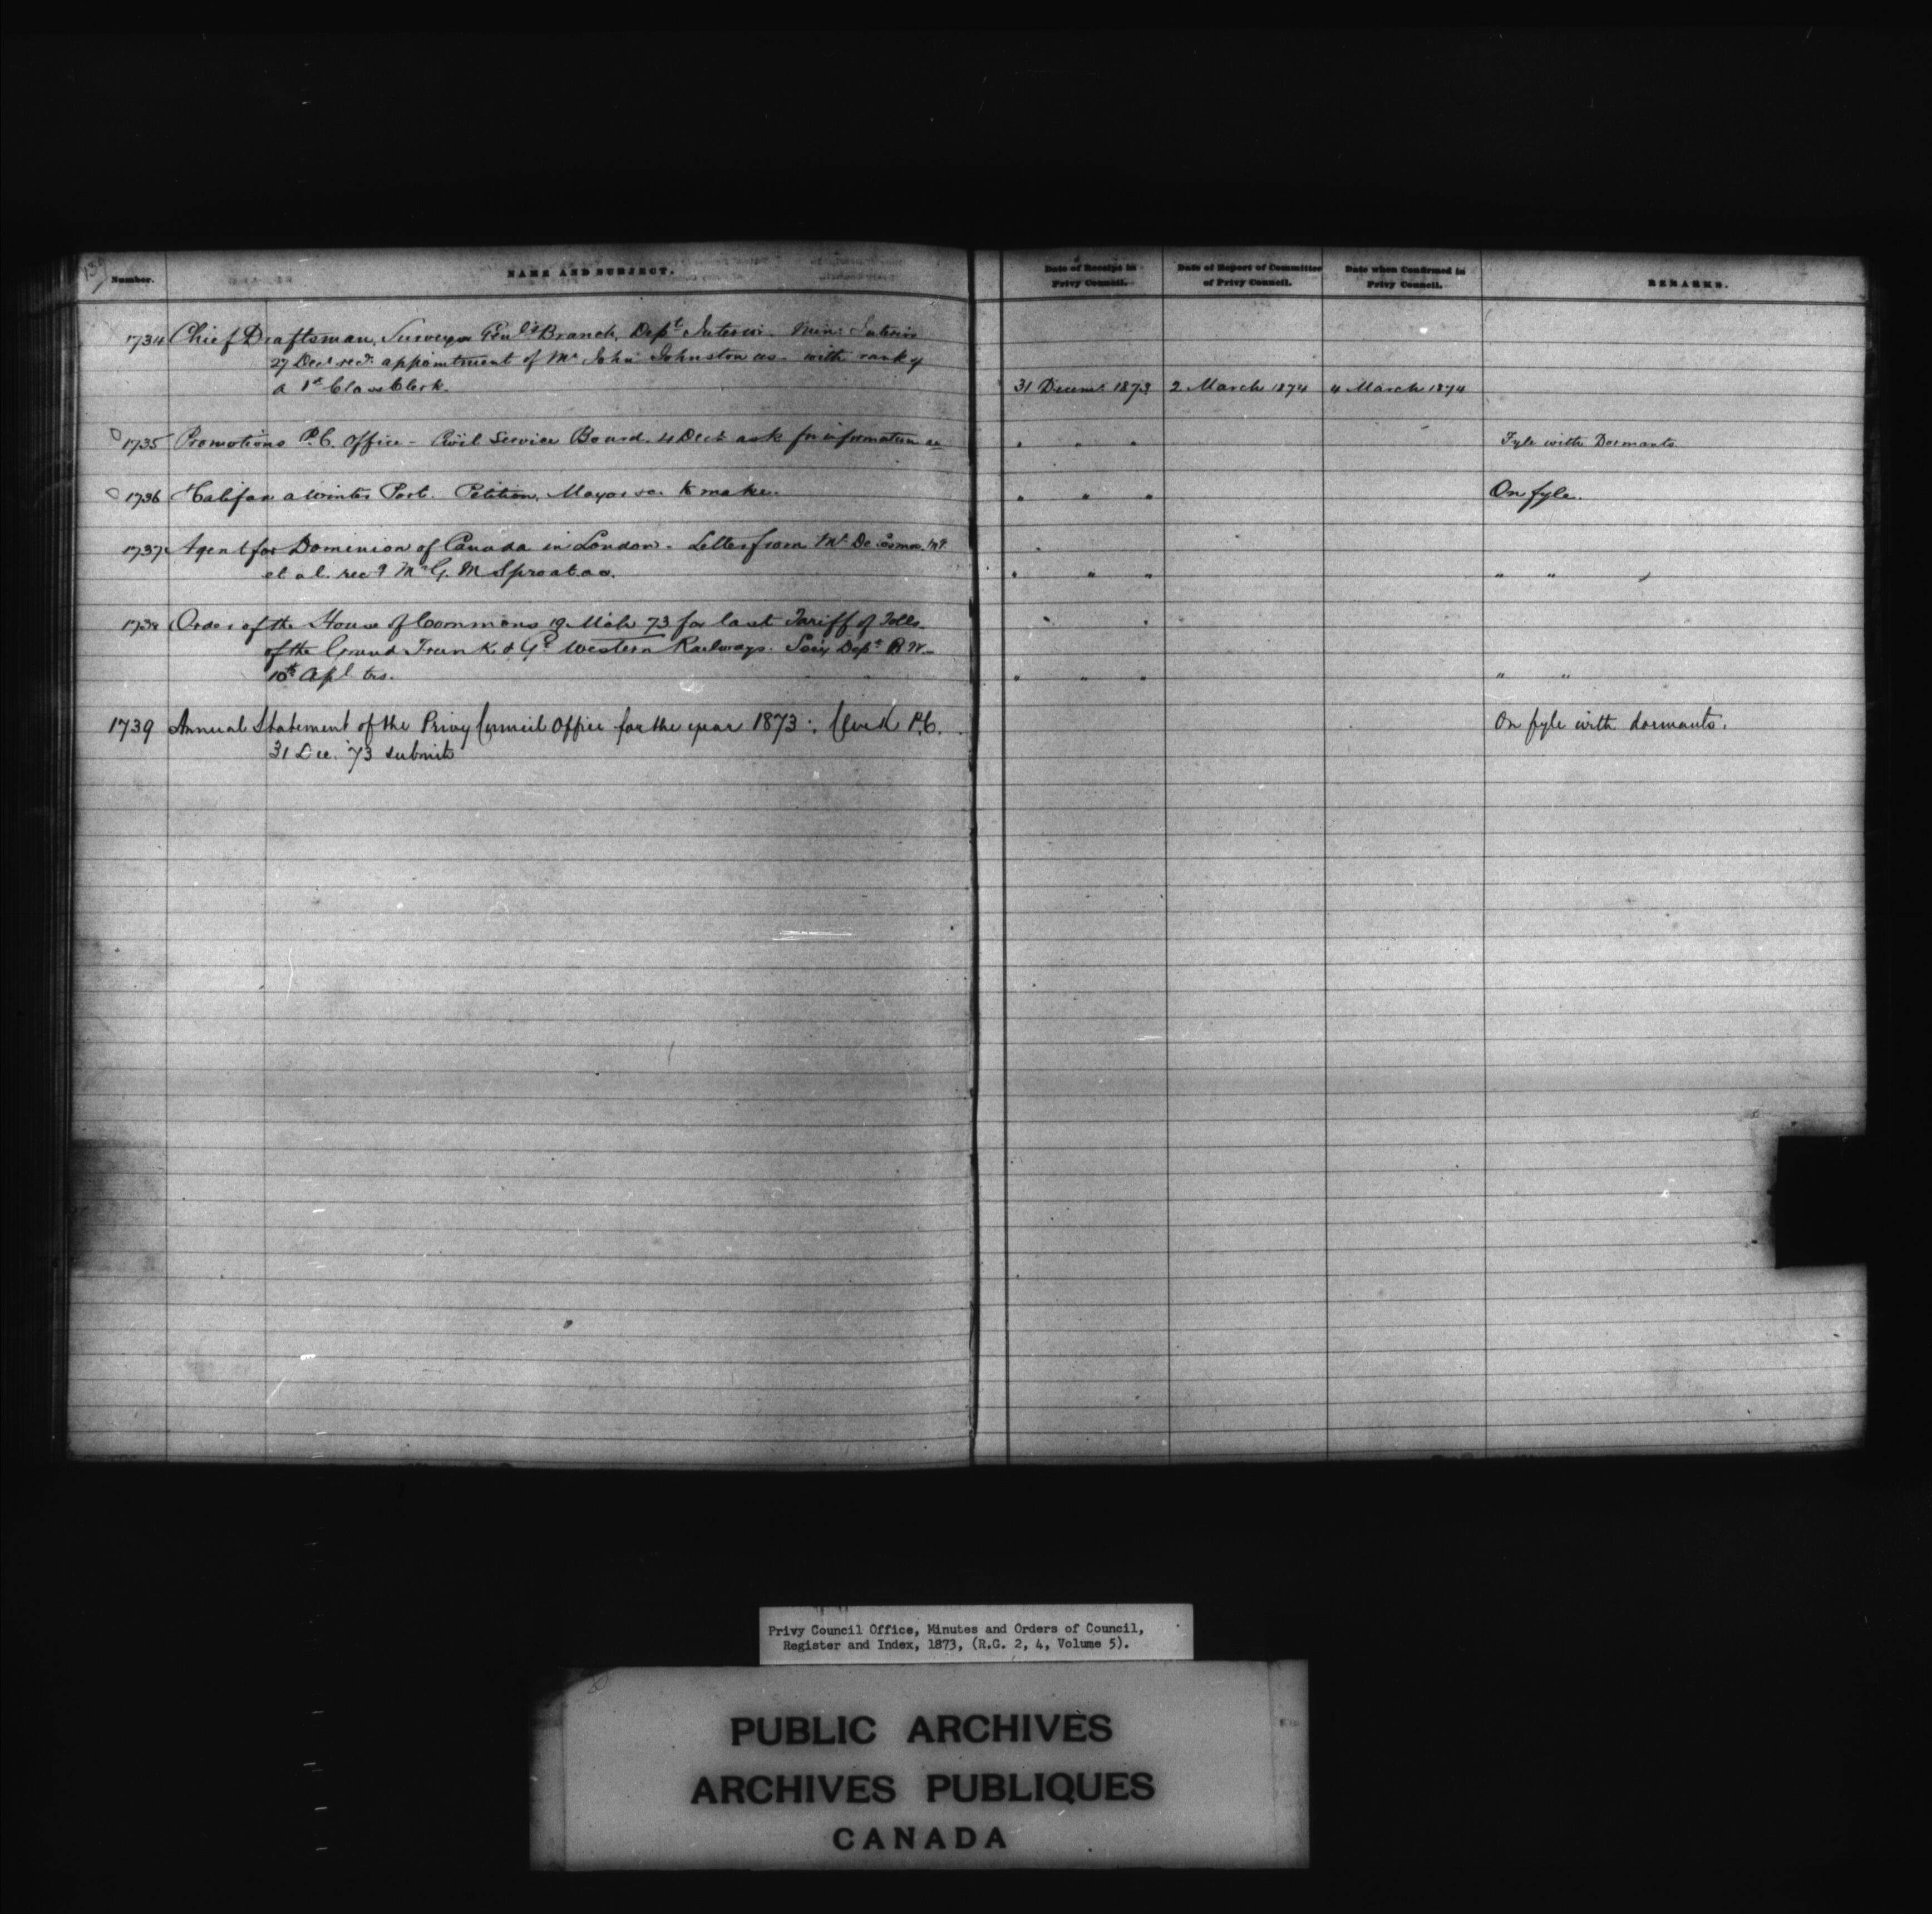 139
Number.
NAME AND SUBJECT.
Date of Receipt in Privy Council.
Date of Report of Committee of Privy Council.
Date when Confirmed in Privy Council.
REMARKS.
1734 Chief Draftsman, Surveyor Genl's Branch, Dept Interior. Min: Interior
27 Decr recd. appointment of Mr John Johnston as - with rank of
a 1st Class Clerk. 31 Decemr 1873 2 March 1874 4 March 1874
1735 Promotions P.C. Office - Civil Service Board. 4 Decr ask for information re " " " Fyle with Dormants
1736 Halifax a Winter Port. Petition, Mayor &c. to make. " " " On fyle.
1737 Agent for Dominion of Canada in London - Letter from Mr De Cosmos. MP.
et al. recd Mr G. M Sproat as. " " " " "
1738 Order of the House of Commons 19 Mch 73 for last Tariff of Tolls
of the Grand Trunk & Gt Western Railways. Secy Dept P.W.
10th Apl trs. " " " " "
1739 Annual Statement of the Privy Council Office for the year 1873. Clerk P.C. On fyle with dormants.
31 Dec. '73 submits
Privy Council Office, Minutes and Orders of Council,
Register and Index, 1873, (R.G. 2, 4, Volume 5).
PUBLIC ARCHIVES
ARCHIVES PUBLIQUES
CANADA